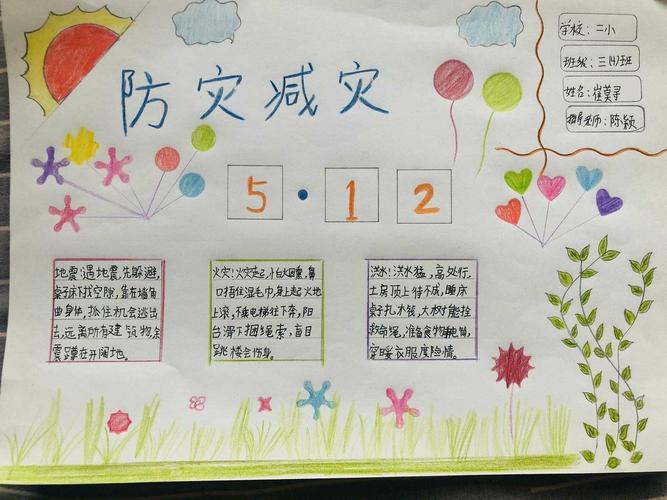 防灾减灾
学校:二小
班级:三(4)班
姓名:崔莫寻
指导老师:陈颖
5·12
地震!遇地震,先躲避,
桌子床下找空隙,靠在墙角
曲身体,抓住机会逃出
去,远离所有建筑物,余
震蹲在开阔地。
火灾!火灾起,怕火困重,鼻
口捂住湿毛巾,身上起火地
上滚,不乘电梯往下奔,阳
台滑下捆绳索,盲目
跳楼会伤身。
洪水!洪水猛,高处行,
土房顶上待不成,睡床
桌子扎木筏,大树可能拴
救命绳,准备食物手电筒,
穿暖衣服度险情。